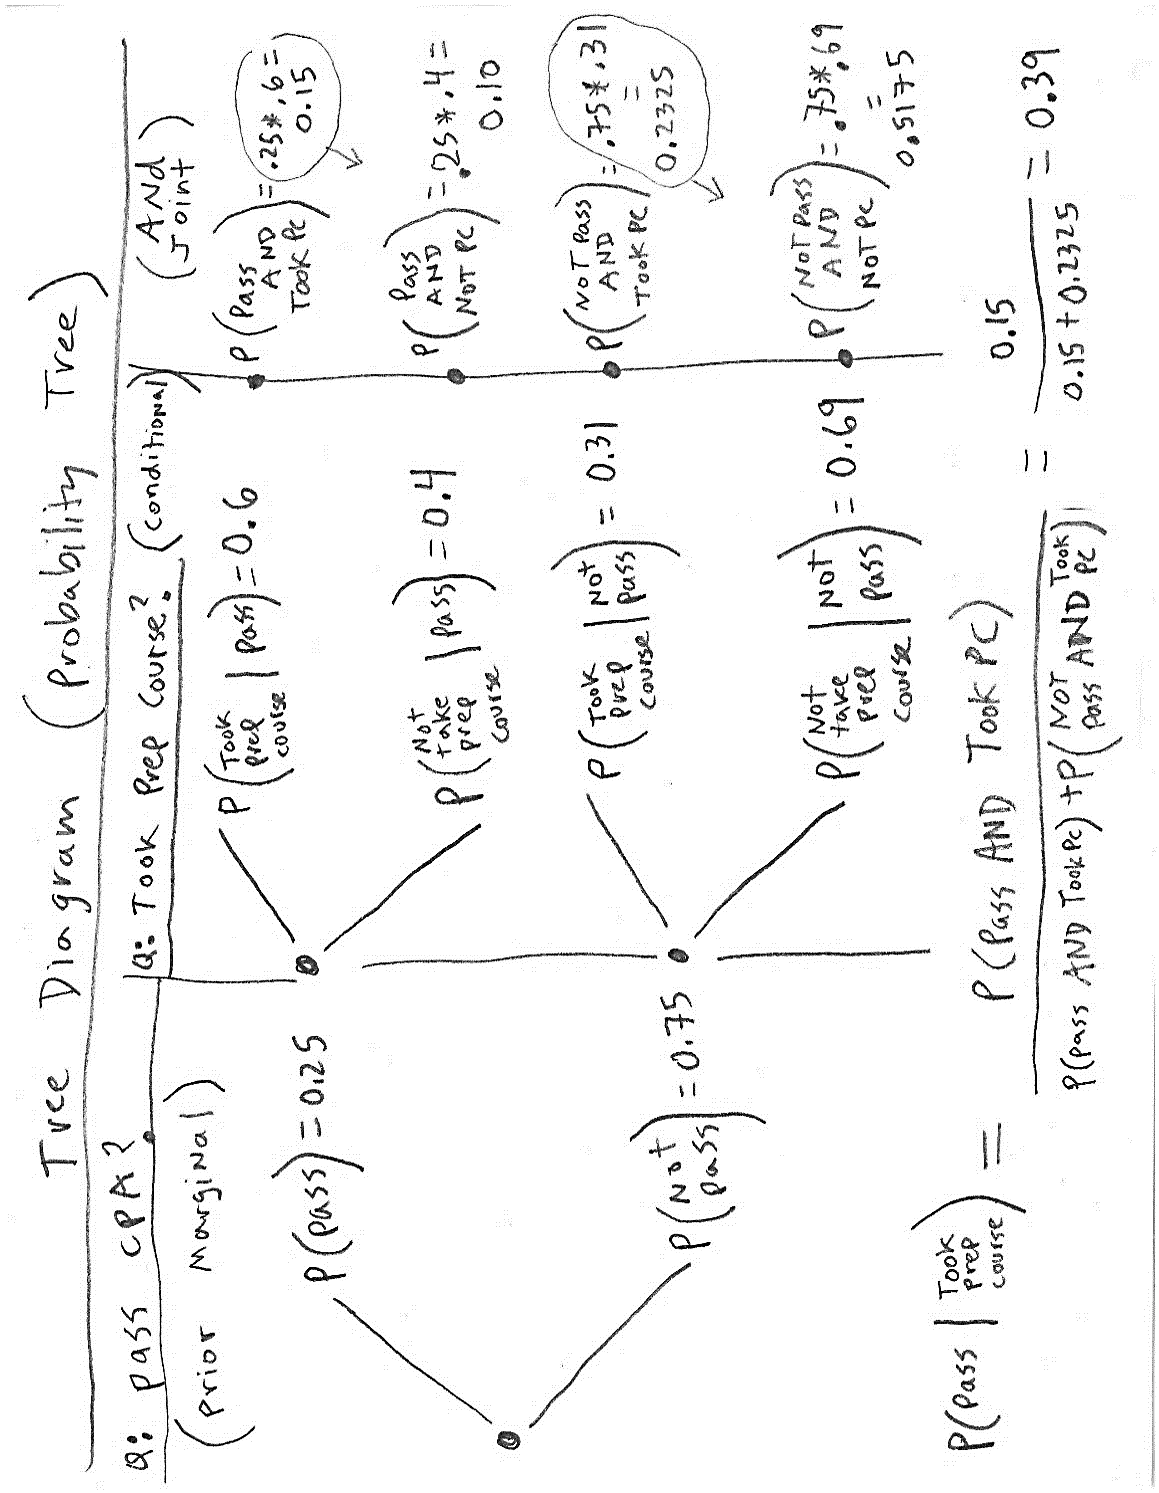 Tree Diagram (Probability Tree)
Q: Pass CPA?
(Prior Marginal)
Q: Took Prep Course?
(conditional)
(AND
Joint)
P(pass) = 0.25
P(Not
pass) = 0.75
P(Took
prep
course | pass) = 0.6
P(Not
take
prep
course | pass) = 0.4
P(Took
prep
course | Not
pass) = 0.31
P(Not
take
prep
course | Not
pass) = 0.69
P(Pass
AND
Took PC) = .25*.6 =
0.15
P(Pass
AND
NOT PC) = .25*.4 =
0.10
P(NOT Pass
AND
Took PC) = .75*.31
=
0.2325
P(NOT Pass
AND
NOT PC) = .75*.69
=
0.5175
P(Pass | Took
prep
course) =
P(Pass AND Took PC)
P(pass AND Took PC) + P(NOT
pass AND Took
PC)
=
0.15
0.15 + 0.2325
= 0.39